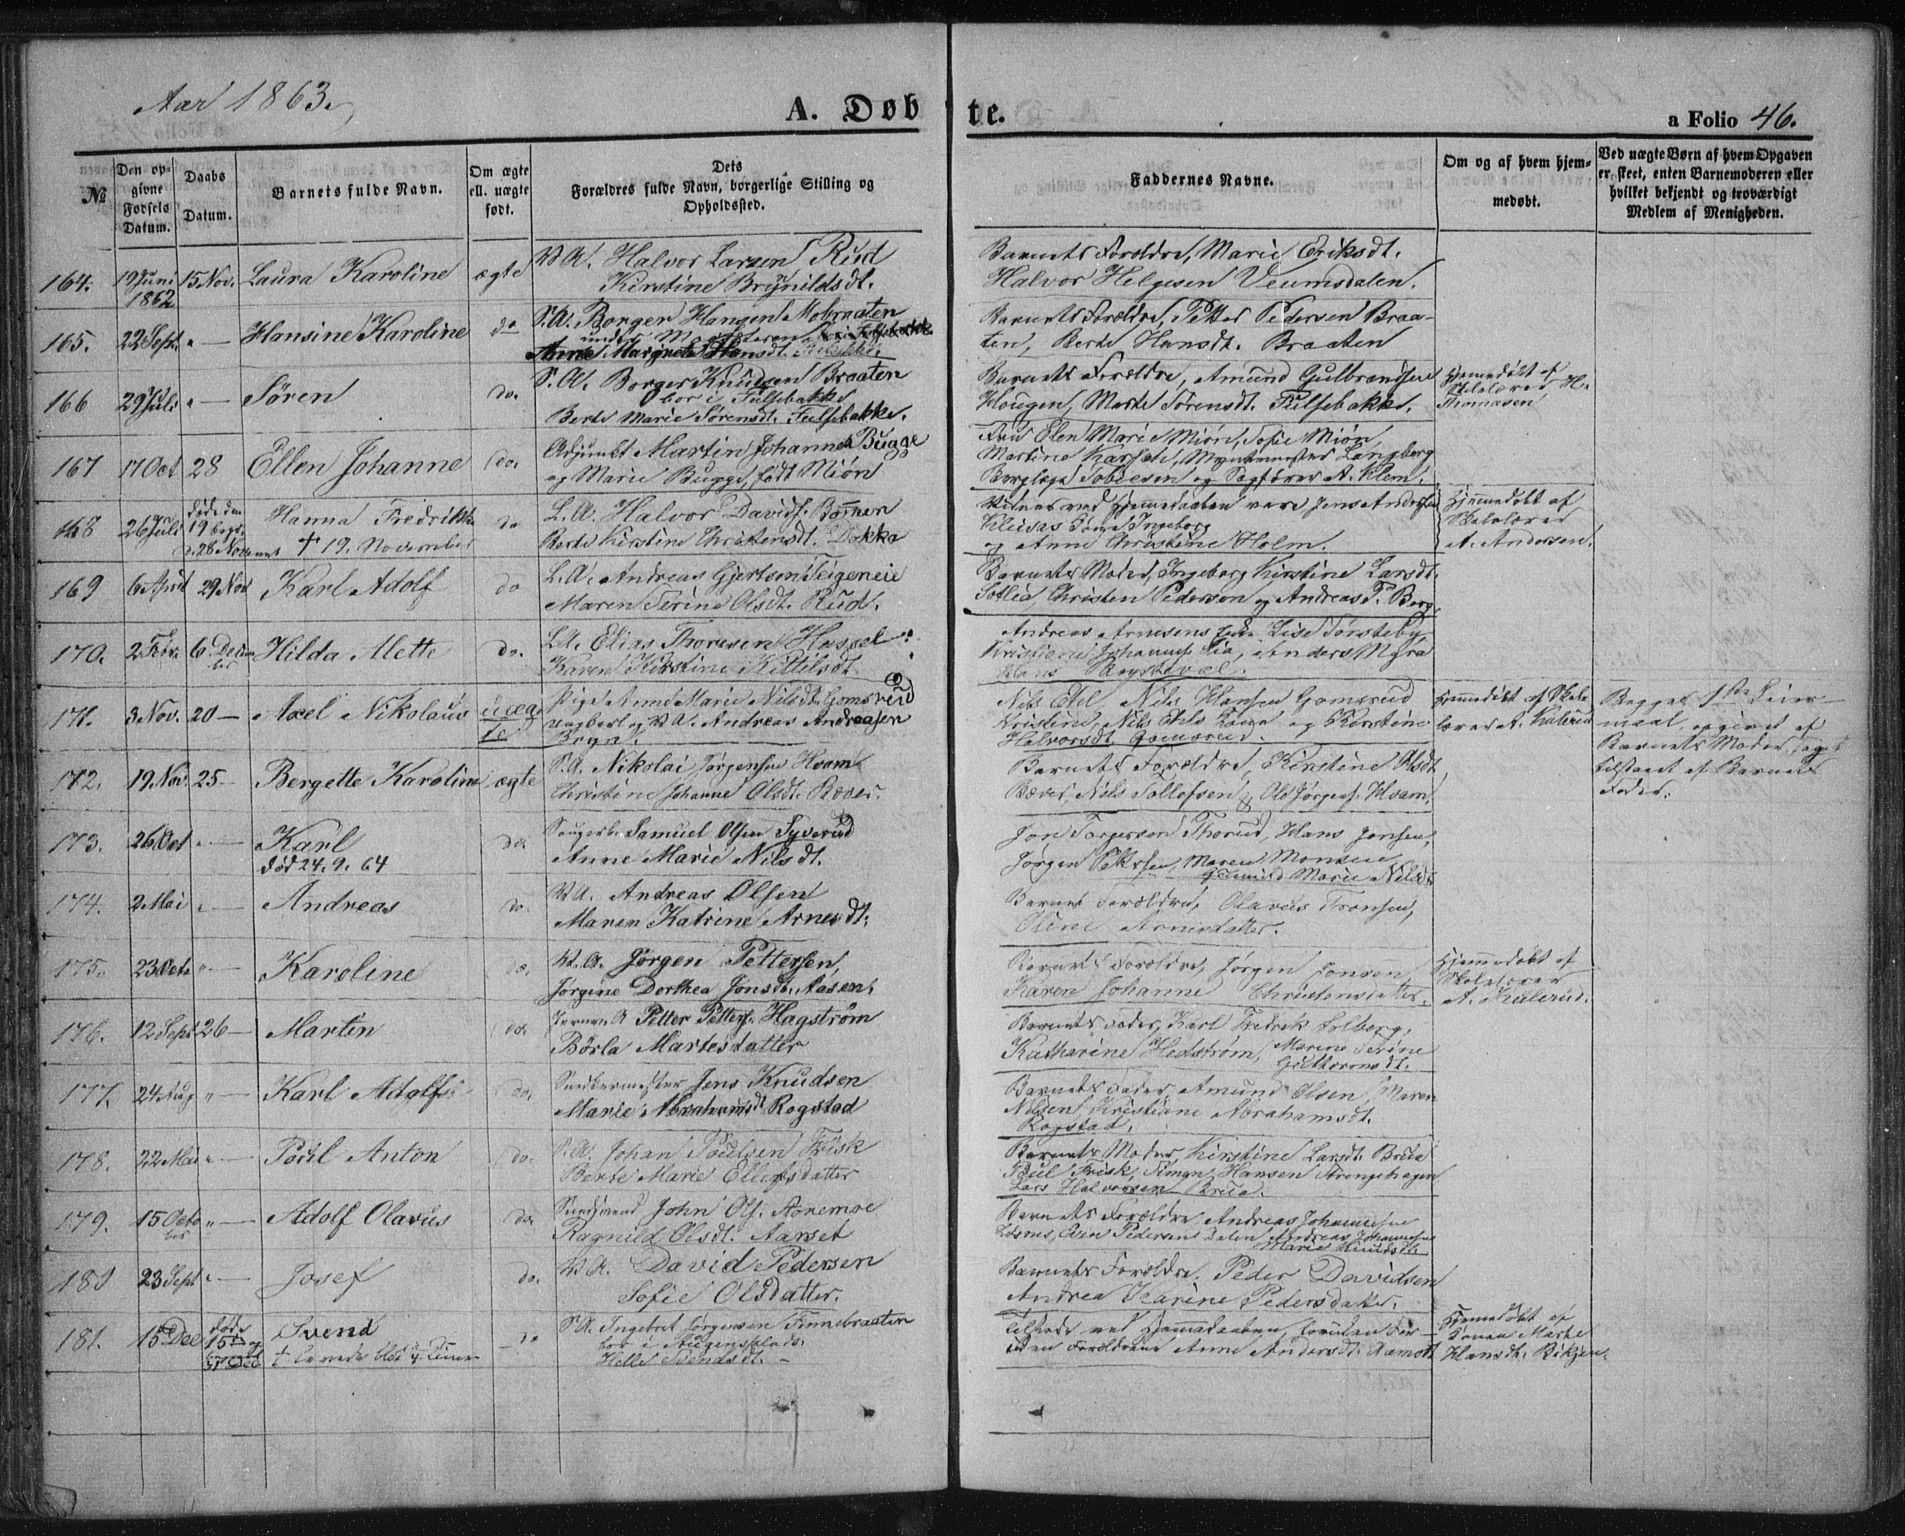 Aar 1863.
A. Døbte.
a Folio 46.
№
Den opgivne Fødsels Datum.
Daabs Datum.
Barnets fulde Navn.
Om ægte ell. uægte født.
Dets Forældres fulde Navn, borgerlige Stilling og Opholdssted.
Faddernes Navne.
Om og af hvem hjemmedøbt.
Ved uægte Børn af hvem Opgaven er skeet, enten Barnemoderen eller hvilket bekjendt og troværdigt Medlem af Menigheden.
164. 19 Juni 1862 15 Nov. Laura Karoline ægte
Halvor Larsen Rud
Kirstine Brynildsdt.
Barnets Forældre, Marie Eriksdt.
Halvor Helgesen Veumsdalen.
165. 22 Sept. " Hansine Karoline do
S.A. Borger Hansen Mobraaten
Anne Margrete Hansdt.
Barnets Forældre, Petter Pedersen Braa-
ten, Berte Hansdt. Braaten
166 29 Juli " Sören do.
S.A. Borger Knudsen Braaten
bor i Fulsebakke
Berte Marie Sörensdt. Fulsebakke.
Barnets Forældre, Amund Gulbrandsen
Hougen, Marte Sörensdt. Fulsebakke.
Hjemmedöbt af
Skolelærer H.
Thomasen
167 17 Oct 28 Ellen Johanne do.
Adjunkt Martin Johannes Bugge
og Marie Bugge, født Miön
Fru Elen Marie Miön, Sofie Miön,
Martine Karsten, Myntmester Langberg
Berglæge Tobiesen og Sagförer A. Klem.
168 26 Juli döde den 19 begr. d. 28 Novemb Hanna Fredrikke do
† 19. November
L.A. Halvor Davids. Bömen
Berte Kirstine Christensdt. Dokka
Vidner ved Hjemmedaaben vare Jens Andersen
og Anne Christine Holm.
Hjemmedöbt af
Skolelærer
A. Andersen.
169 6 April 29 Nov Karl Adolf do
L.A. Andreas Gjertsen Teigeneie
Maren Terine Olsdt. Rud.
Barnets Moder, Ingeborg Kirstine Larsdt.
Sollie, Christen Pedersen og Andreas T. Berg
170. 2 Febr. 6 December Hilda Mette do.
L.A. Elias Thoresen Hassel
Karen Kirstine Kittilsdt.
Andreas Arnesens Enke Lise Torsteby
Kristiane Johannesd. Lia, Anders Myra
Hans
171. 3 Nov. 20 — Axel Nikolaus uægte
Pige Anne Marie Nilsdt. Gomsrud
Ungkarl og B.A. Andreas Andreasen
Bryn.
Nils Eks, Nils Hansen Gomsrud
Kristine Nils Eks Kone og Kirstine
Halvorsdt. Gomsrud.
Hjemmedöbt af Skole
lærer A. Kulerud
Begges 1ste Leier-
maal, opgivet af
Barnets Moder, og
tilstaaet af Barnets
Fader.
172. 19 Nov. 25 — Bergette Karoline ægte
S.A. Nikolai Jörgensen Hvam
Christine Johanne Olsdt. Bæver.
Barnets Forældre, Kirstine Olsdt,
Bæver, Nils Tollefsen & Ole Jörgens. Hvam.
173. 26 Oct " — Karl do.
död 24.9.64
Samuel Olsen Tyverud
Anne Marie Nilsdt.
Jon Torgersen Thorud, Hans Jensen,
Jörgen Pettersen, Maren Monsen
Gunild Marie Nilsdt.
174. 2 Mai " — Andreas do.
B.A. Andreas Olsen
Maren Katrine Arnesdt.
Barnets Forældre, Olavus Tronsen,
Oline Arnesdatter.
175. 23 Octr " — Karoline do.
B.A. Jörgen Pettersen
Jörgine Dorthea Jonsdt. Aasen.
Barnets Forældre, Jörgen Jonsen,
Karen Johanne Christensdatter.
Hjemmedöbt af
Skolelærer
A. Kulerud.
176. 12 Sept 26 — Martin do.
Petter Petters. Hagström
Börla Martesdatter
Barnets Fader, Karl Fredrik Solberg,
Katharine Hedström, Marine Terine
Guthormsdt.
177. 24 Aug " — Karl Adolf do.
Jens Knudsen
Marie Abrahamsdt Rogstad
Barnets Fader, Amund Olsen, Maren
Nilsen, Kristiane Abrahamsdt.
Rogstad.
178. 22 Mai " — Poul Anton do.
S.A. Johan Poulsen Frisk
Berte Marie Ellefsdatter
Barnets Moder, Kirstine Larsdt. Brua
Poul Frisk, Simen Hansen Strengehagen
Lars Halvorsen Brua.
179. 15 October " — Adolf Olavus do
John Ols. Aanemoe
Ragnild Olsdt. Aarset
Barnets Forældre, Andreas Johannesen
Pedersen Dalen, Andreas Johannesen
Marie Knudsdt.
180 23 Sept " — Josef do.
B.A. David Pedersen
Sofie Olsdatter.
Barnets Forældre, Peder Davidsen
Andrea Karine Pedersdatter.
181. 15 Dec döde 15 Svend do
† levede blot 4 Timer
S.A. Ingebret Jörgensen Finnebraaten
bor i
Helle Svendsdt. —
Tilstede ved Hjemmedaaben, foruden For-
ældrene Anne Andersdt. Aamot
Hjemmedöbt af
Konen Marte
Hansdt. Bikjen.